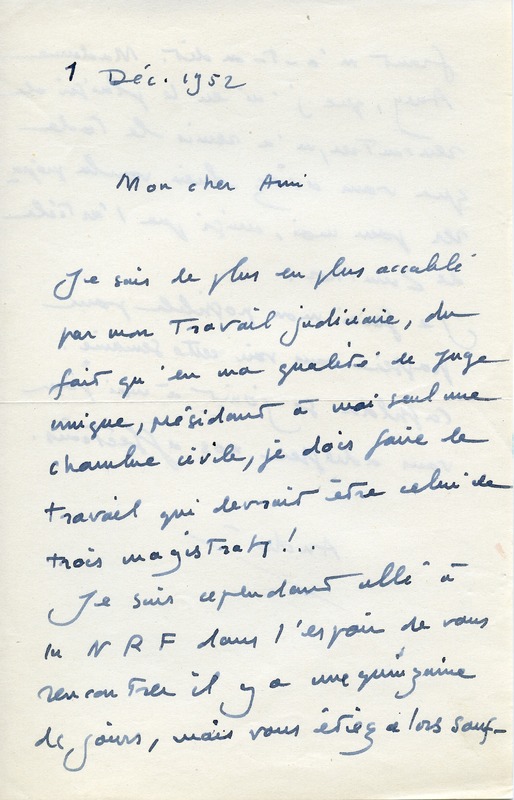 1 Déc. 1952
Mon cher Ami
Je suis de plus en plus accablé
par mon travail judiciaire, du
fait qu'en ma qualité de juge
unique, présidant à moi seul une
chambre civile, je dois faire le
travail qui devrait être celui de
trois magistrats!..
Je suis cependant allé à
la NRF dans l'espoir de vous
rencontrer il y a une quinzaine
de jours, mais vous étiez alors souf-